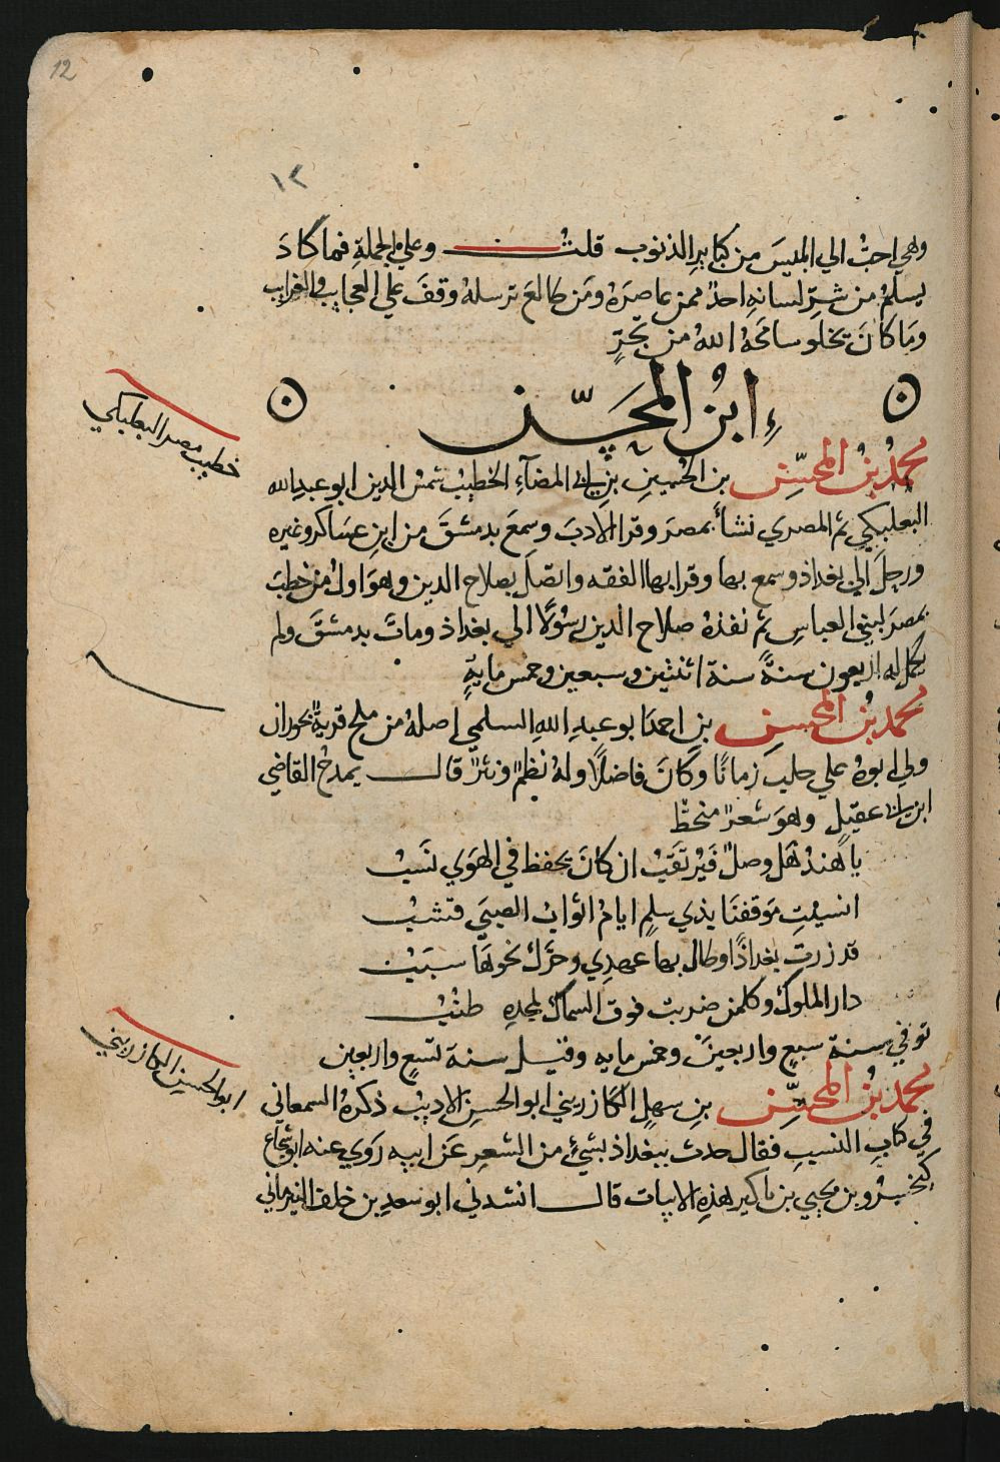 12
١٢
وهي احبّ الي ابليسَ من كبايرِ الذنوب قلتُ وعلي الجملةِ فما كادَ
يسلمُ من شرّ لسانهِ احدٌ ممن عاصرَهُ ومَن طالعَ ترسلهُ وقفَ علي العجايب والغرايب
ومَا كانَ يخلو سامحَهُ اللهُ من تجرٍّ
ابنُ المحسّن
خطيب مصر البعلبكي
محمدُ بنُ المحسّن بن الحُسين بن ابي المضآءِ الخطيبُ شمسُ الدين ابو عبدالله
البعلبكي ثم المصري نشأ بمصرَ وقرا الادبَ وسمعَ بدمشقَ من ابنِ عسَاكر وغيره
ورحلَ الي بغداذ وسمع بها وقرا بها الفقه واتّصلَ بصلاح الدين وهوَ اولُ من خطبَ
بمصرَ لبني العباسِ ثم نفذهُ صلاح الدين رسُولًا الي بغداذ وماتَ بدمشقَ ولم
يكمل له اربعون سنةً سنة اثنتين وسبعين وخمس مايةٍ
محمدُ بنُ المحسن بن احمدَ ابو عبدِ اللهِ السلمي اصلهُ من ملح قريةٌ بحوران
ولي ابوهُ علي حلبَ زمانًا وكانَ فاضلًا ولهُ نظمٌ ونثرٌ قال يمدحُ القاضي
ابن ابي عقيلٍ وهوَ شعرٌ منحطٌ
يا هندُ هَل وصلٌ فَيُرتَقَبُ ان كانَ يحفظ في الهوَي نسَبُ
انسيتِ مَوقفنَا بذي سلمٍ ايامُ اثوابُ الصبيَ قشبُ
قد زرتُ بغداذًا وطالَ بها عهدِي وحرّك نحوهَا سببُ
دار الملوكُ وكلمن ضربت فوقَ السماكُ لمجدهِ طنبُ
توفي سنة سبعٍ واربعينَ وخمس مايه وقيل سنة تسعٍ واربعين
ابو الحسين الكازريني
محمدُ بنُ المحسّن بن سهلٍ الكازريني ابو الحسن الاديبُ ذكرهُ السمعاني
في كتابِ النسبِ فقال حدث ببغداذ بشيءٍ من الشعرِ عَن ابيه رَوَي عنه ابو شجاع
كيخسرُو بن يحيي بن باكير هذهِ الابيات قال انشدني ابو سعدِ بن خلف النيرماني